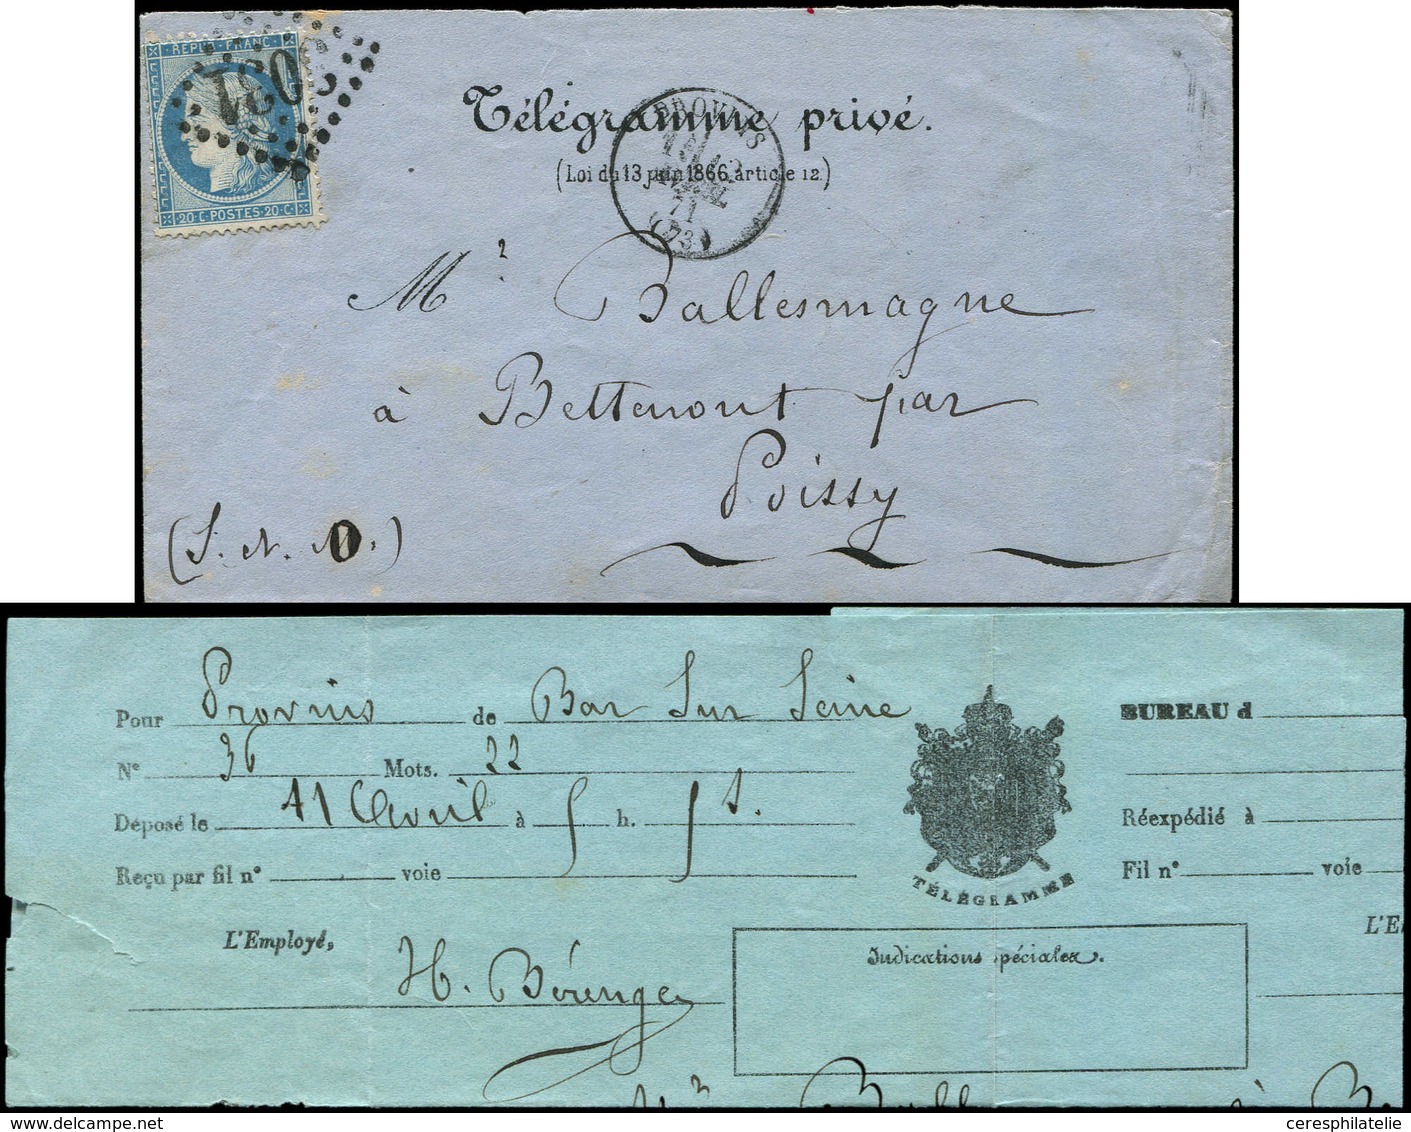 REPUB. FRANC.
20·C·POSTES·20·C·
Télégramme privé.
(Loi du 13 juin 1866, article 12.)
PROVINS
71
(73)
Mr Ballesmagne
à Bettemont par
Poissy
(S. N. M.)
O
Pour Provins de Bar Sur Seine
N° 36 Mots. 22
Déposé le 11 Avril à 5 h. 5 s.
Reçu par fil n° voie
L'Employé,
H. Bérenger
TÉLÉGRAMME
Indications spéciales.
BUREAU d
Réexpédié à
Fil n° voie
L'E
à B
ceresphilatelie